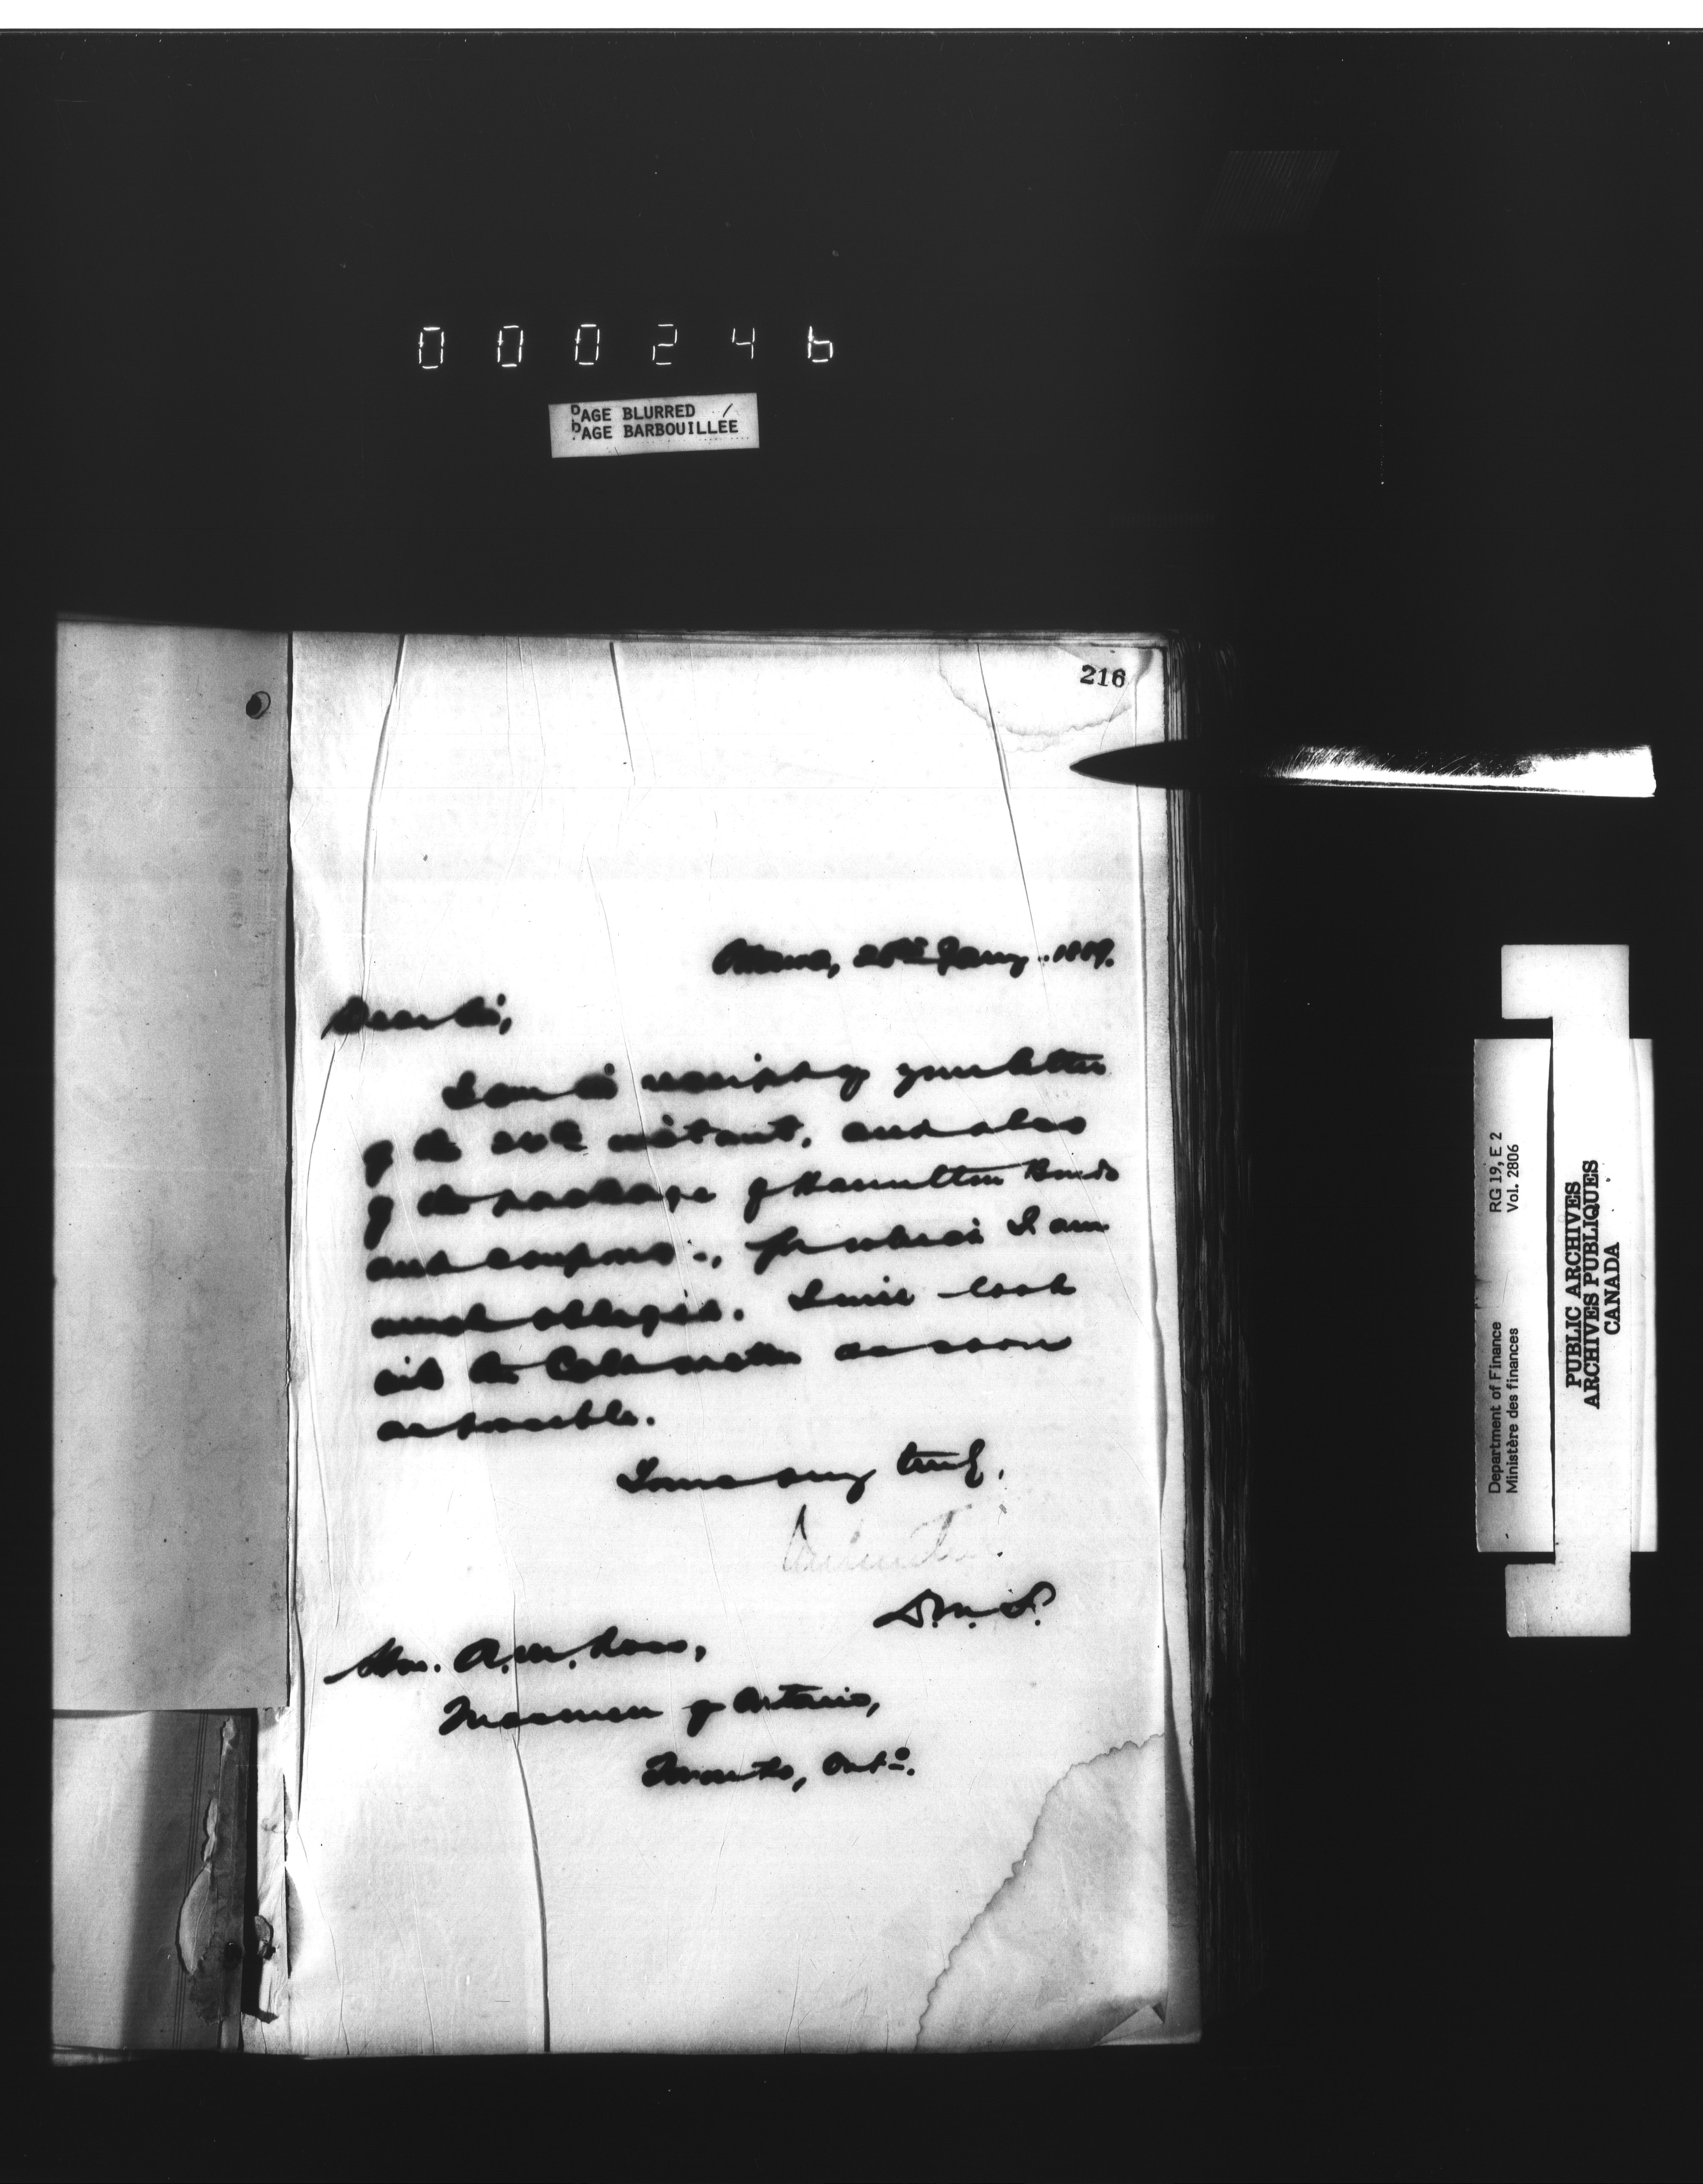 000246
PAGE BLURRED
PAGE BARBOUILLÉE
216
Ottawa, 28th Jany. 1889.
Dear Sir,
I am in receipt of your letter
of the instant, and also
of the package of Hamilton Bonds
and coupons, for which I am
much obliged. I will look
into the matter as soon
as possible.
Yours very truly,
D.M.F.
Hon. A.M. Ross,
Treasurer of Ontario,
Toronto, Onto.
Department of Finance RG 19, E 2
Ministère des finances Vol. 2806
PUBLIC ARCHIVES
ARCHIVES PUBLIQUES
CANADA